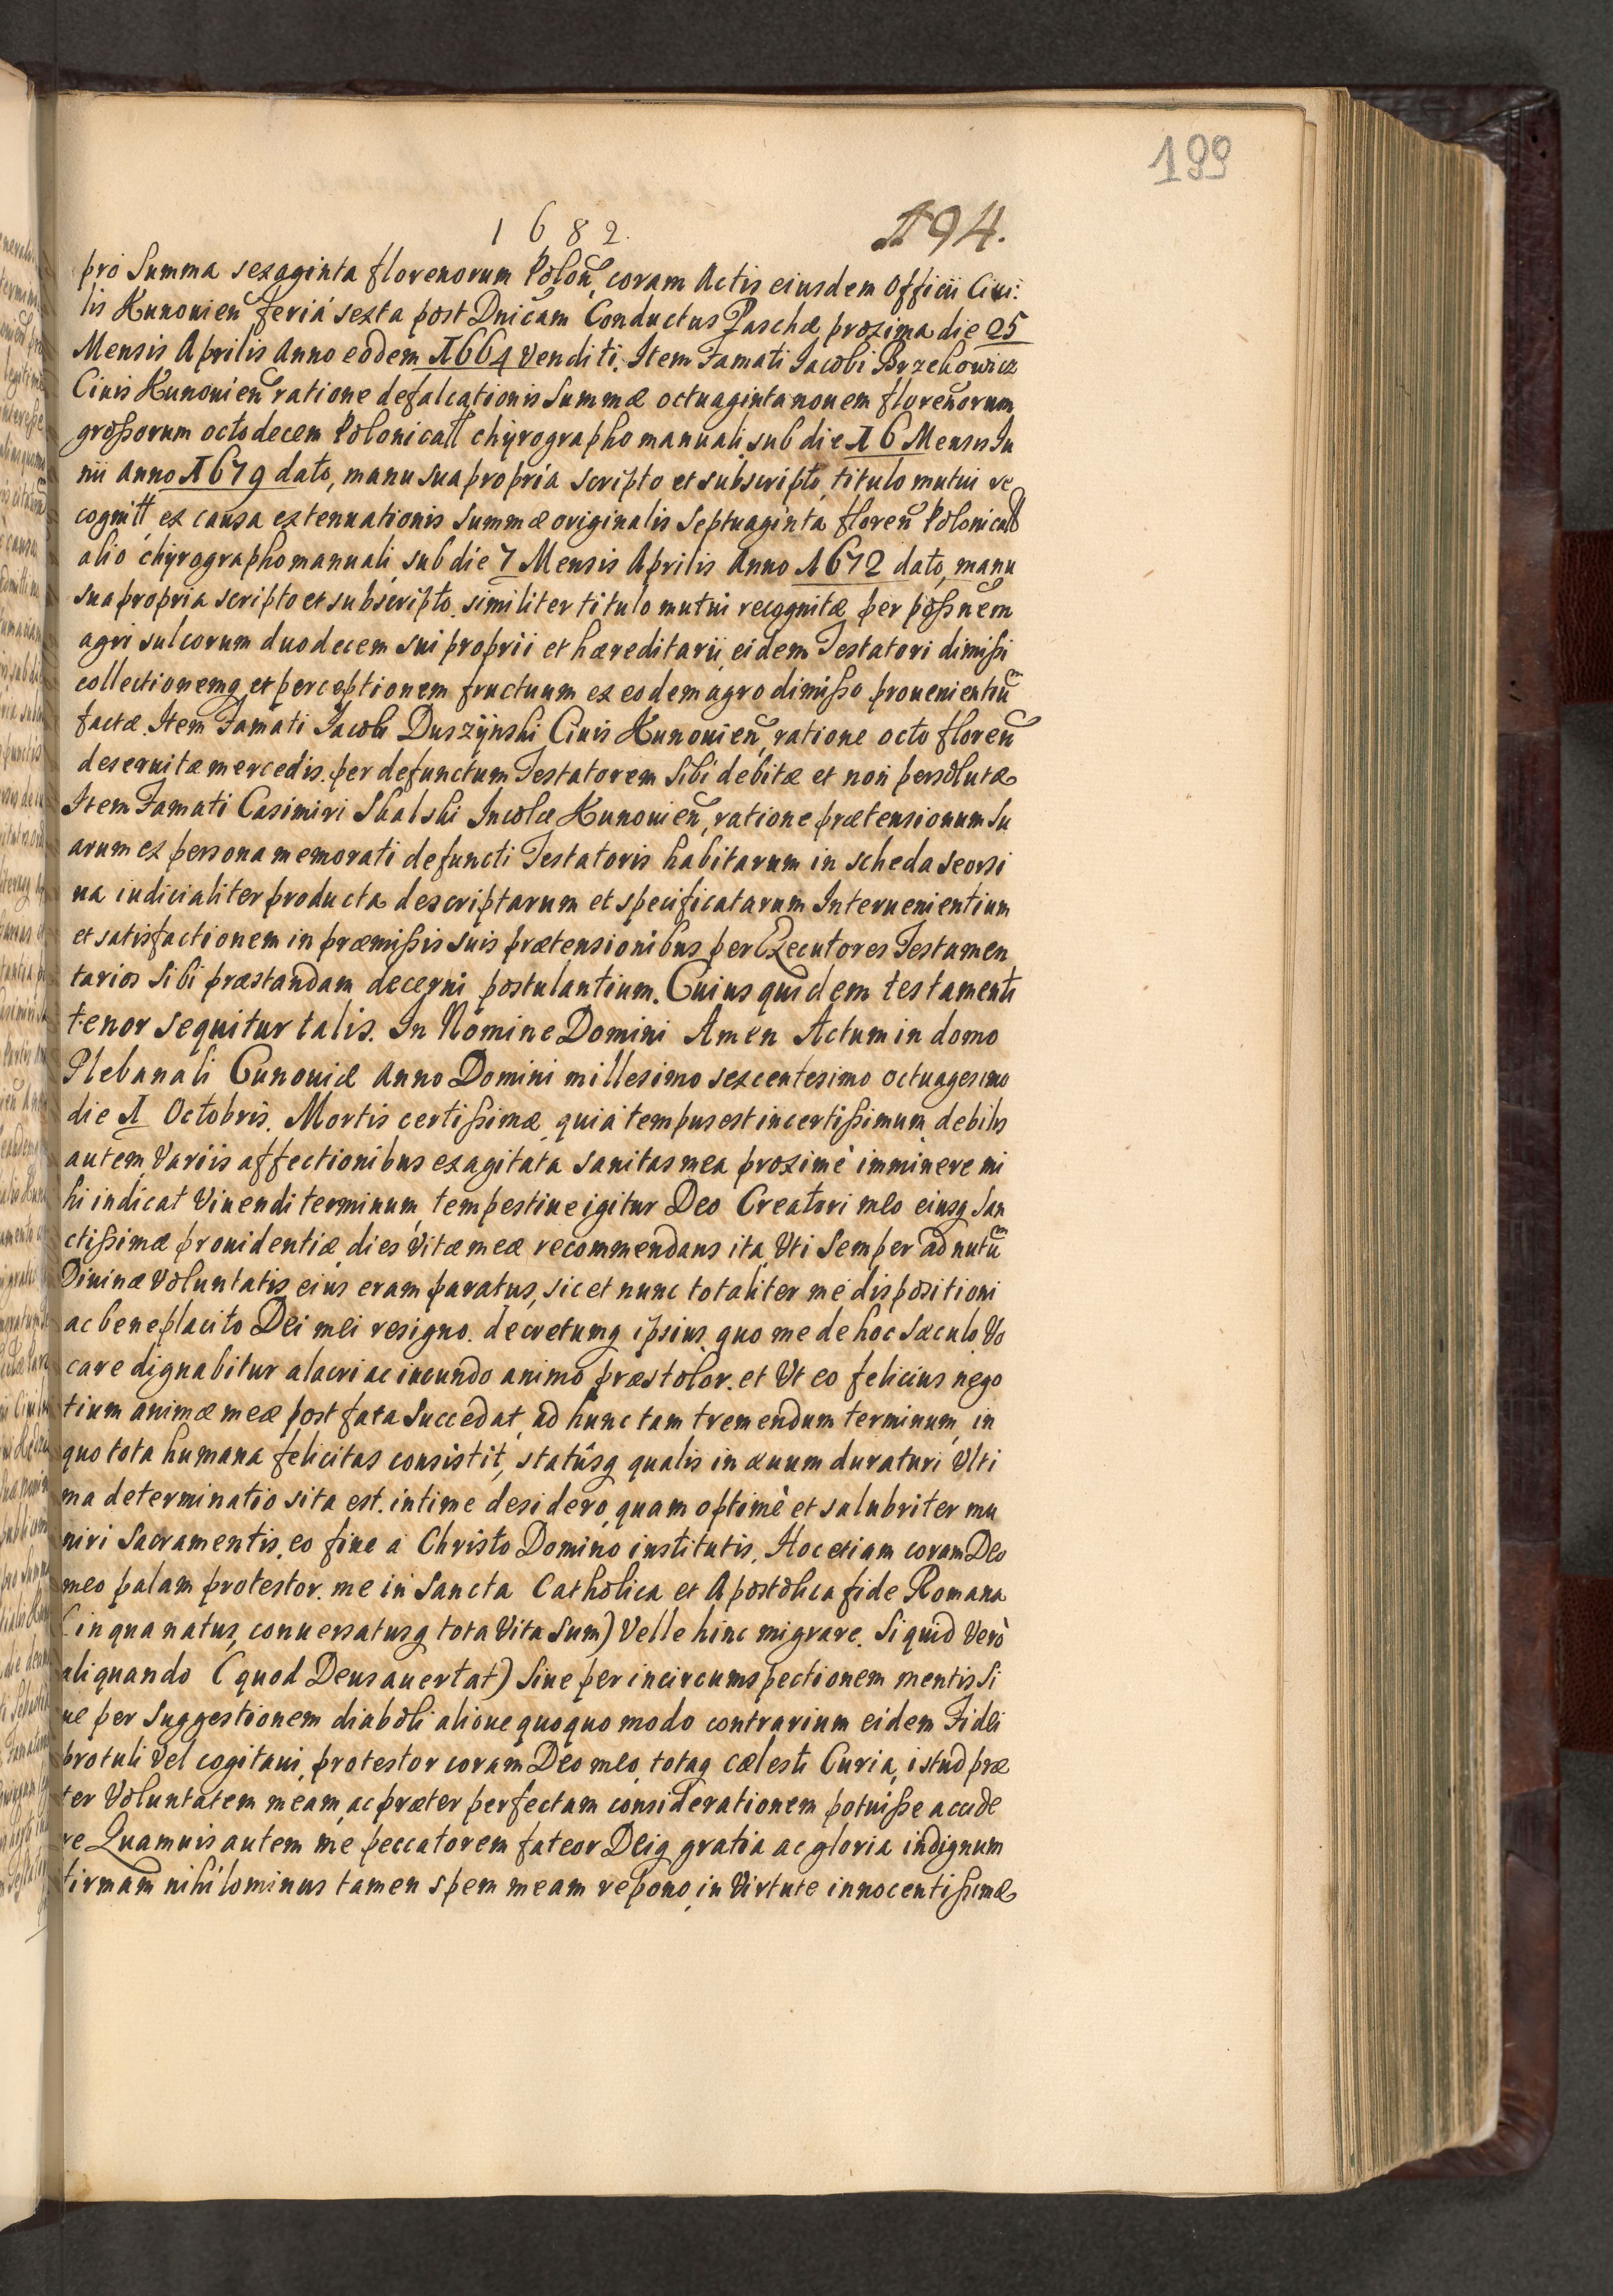 199
1682. 194.
pro Summa sexaginta florenorum Polon̄, coram Actis eiusdem Officii Ciui:
lis Kunouien̄ feriá sexta post Dnicam Conductus Paschæ proxima die 25
Mensis Aprilis Anno eodem 1664 venditi. Item Famati Iacobi Brzehowicz
Ciuis Kunouien̄ ratione defalcationis Summæ octuaginta nouem florenorum
großorum octodecem Polonicall chÿrographo manuali, sub die 16 Mensis Iu
nii Anno 1679 dato, manu sua propria scripto et subscripto, titulo mutui re
cognitt, ex causa extenuationis Summæ originalis Septuaginta floren̄ Polonicall
alio chÿrographo manuali, sub die 7 Mensis Aprilis Anno 1672 dato, manu
sua propria scripto et subscripto. similiter titulo mutui recognitæ per poßnem
agri sulcorum duodecem sui proprii et hæreditarii, eidem Testatori dimißi
collectionemq et perceptionem fructuum ex eodem agro dimißo prouenientiū
factæ. Item Famati Iacobi Duszÿnski Ciuis Kunouien̄, ratione octo floren̄
deseruitæ mercedis. per defunctum Testatorem Sibi debitæ et non persolutæ
Item Famati Casimiri Skalski Incolæ Kunouien̄, ratione prætensionum Su
arum ex persona memorati defuncti Testatoris habitarum in scheda seorsi
ua iudicialiter producta descriptarum et specificatarum Interuenientium
et satisfactionem in præmißis suis prætensionibus per Executores Testamen
tarios Sibi præstandam decerni postulantium. Cuius quidem testamenti
tenor sequitur talis. In Nomine Domini Amen Actum in domo
Plebanali Cunouiæ Anno Domini millesimo sexcentesimo octuagesimo
die 1 Octobris. Mortis certißimæ, quia tempus est incertißimum, debilis
autem Variis affectionibus exagitata sanitas mea proximè imminere mi
hi indicat Viuendi terminum, tempestiue igitur Deo Creatori meo eiusq San
ctißimæ prouidentiæ dies Vitæ meæ recommendans ita Uti Semper ad nutū
Diuinæ Voluntatis eius eram paratus, sic et nunc totaliter me dispositioni
ac beneplacito Dei mei resigno. decretumq ipsius quo me de hoc Sæculo Vo
care dignabitur alacri ac iucundo animo præstolor. et Ut eo felicius nego
tium animæ meæ post fata Succedat, ad hunc tam tremendum terminum, in
quo tota humana felicitas consistit, statûsq qualis in æuum duraturi Ulti
ma determinatio sita est. intime desidero, quam optimè et salubriter mu
niri Sacramentis, eo fine a Christo Domino institutis, Hoc etiam coram Deo
meo palam protestor. me in Sancta Catholica et Apostolica fide Romana
(in qua natus, conuersatusq tota Vita Sum) Velle hinc migrare. Si quid Verò
aliquando (quod Deus auertat) Siue per incircumspectionem mentis Si
ue per Suggestionem diaboli alioue quoquo modo contrarium eidem Fidei
protuli Vel cogitaui, protestor coram Deo meo, totaq cælesti Curia, istud præ
ter Voluntatem meam, ac præter perfectam considerationem potuiße accide
re Quamuis autem me peccatorem fateor Deiq gratia ac gloria indignum
firmam nihilominus tamen spem meam repono, in Virtute innocentißimæ